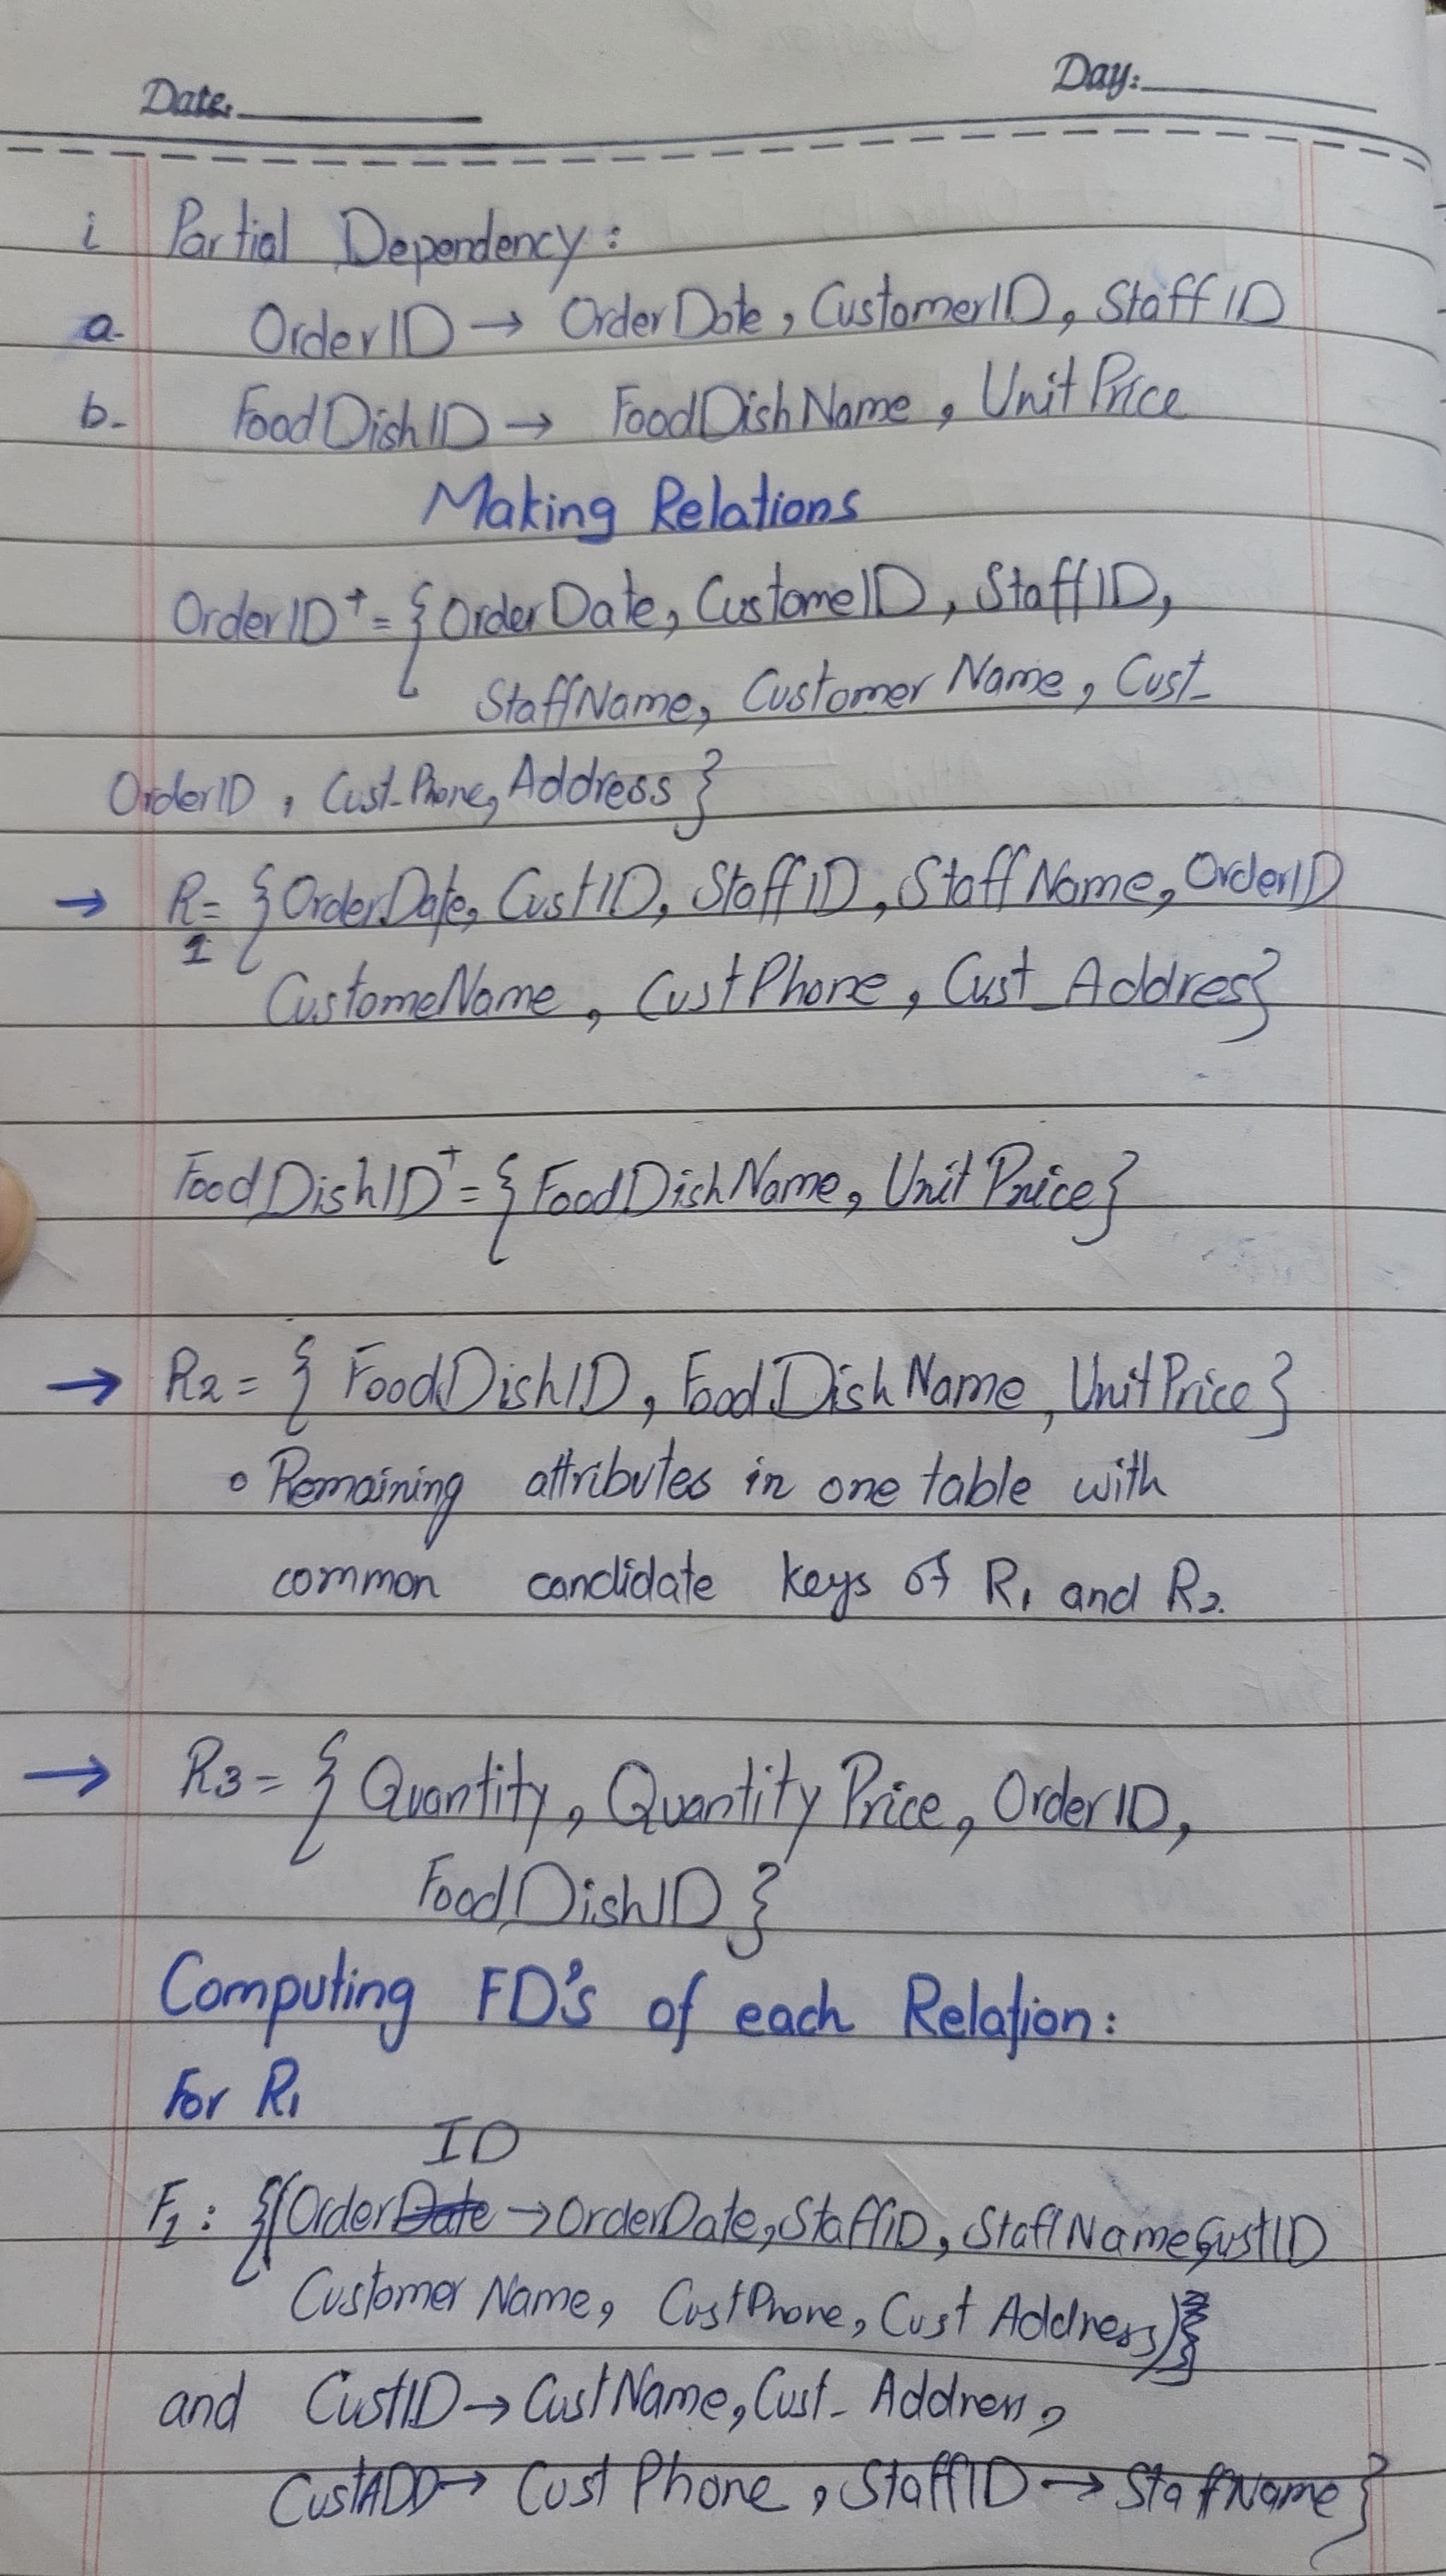 Date:
Day:
i Partial Dependency:
a. OrderID → OrderDate, CustomerID, StaffID
b. FoodDishID → FoodDishName, UnitPrice
Making Relations
OrderID⁺ = {OrderDate, CustomeID, StaffID,
StaffName, Customer Name, Cust_
OrderID, Cust_Phone, Address}
→ R1 = {OrderDate, CustID, StaffID, StaffName, OrderID
CustomeName, CustPhone, Cust_Addres}
FoodDishID⁺ = {FoodDishName, UnitPrice}
→ R2 = {FoodDishID, FoodDishName, UnitPrice}
• Remaining attributes in one table with
common candidate keys of R1 and R2.
→ R3 = {Quantity, QuantityPrice, OrderID,
FoodDishID}
Computing FD's of each Relation:
For R1
ID
F1: {(OrderDate → OrderDate, StaffID, StaffName, CustID
Customer Name, CustPhone, Cust Address)
and CustID → CustName, Cust_Address,
CustADD → CustPhone, StaffID → StaffName}